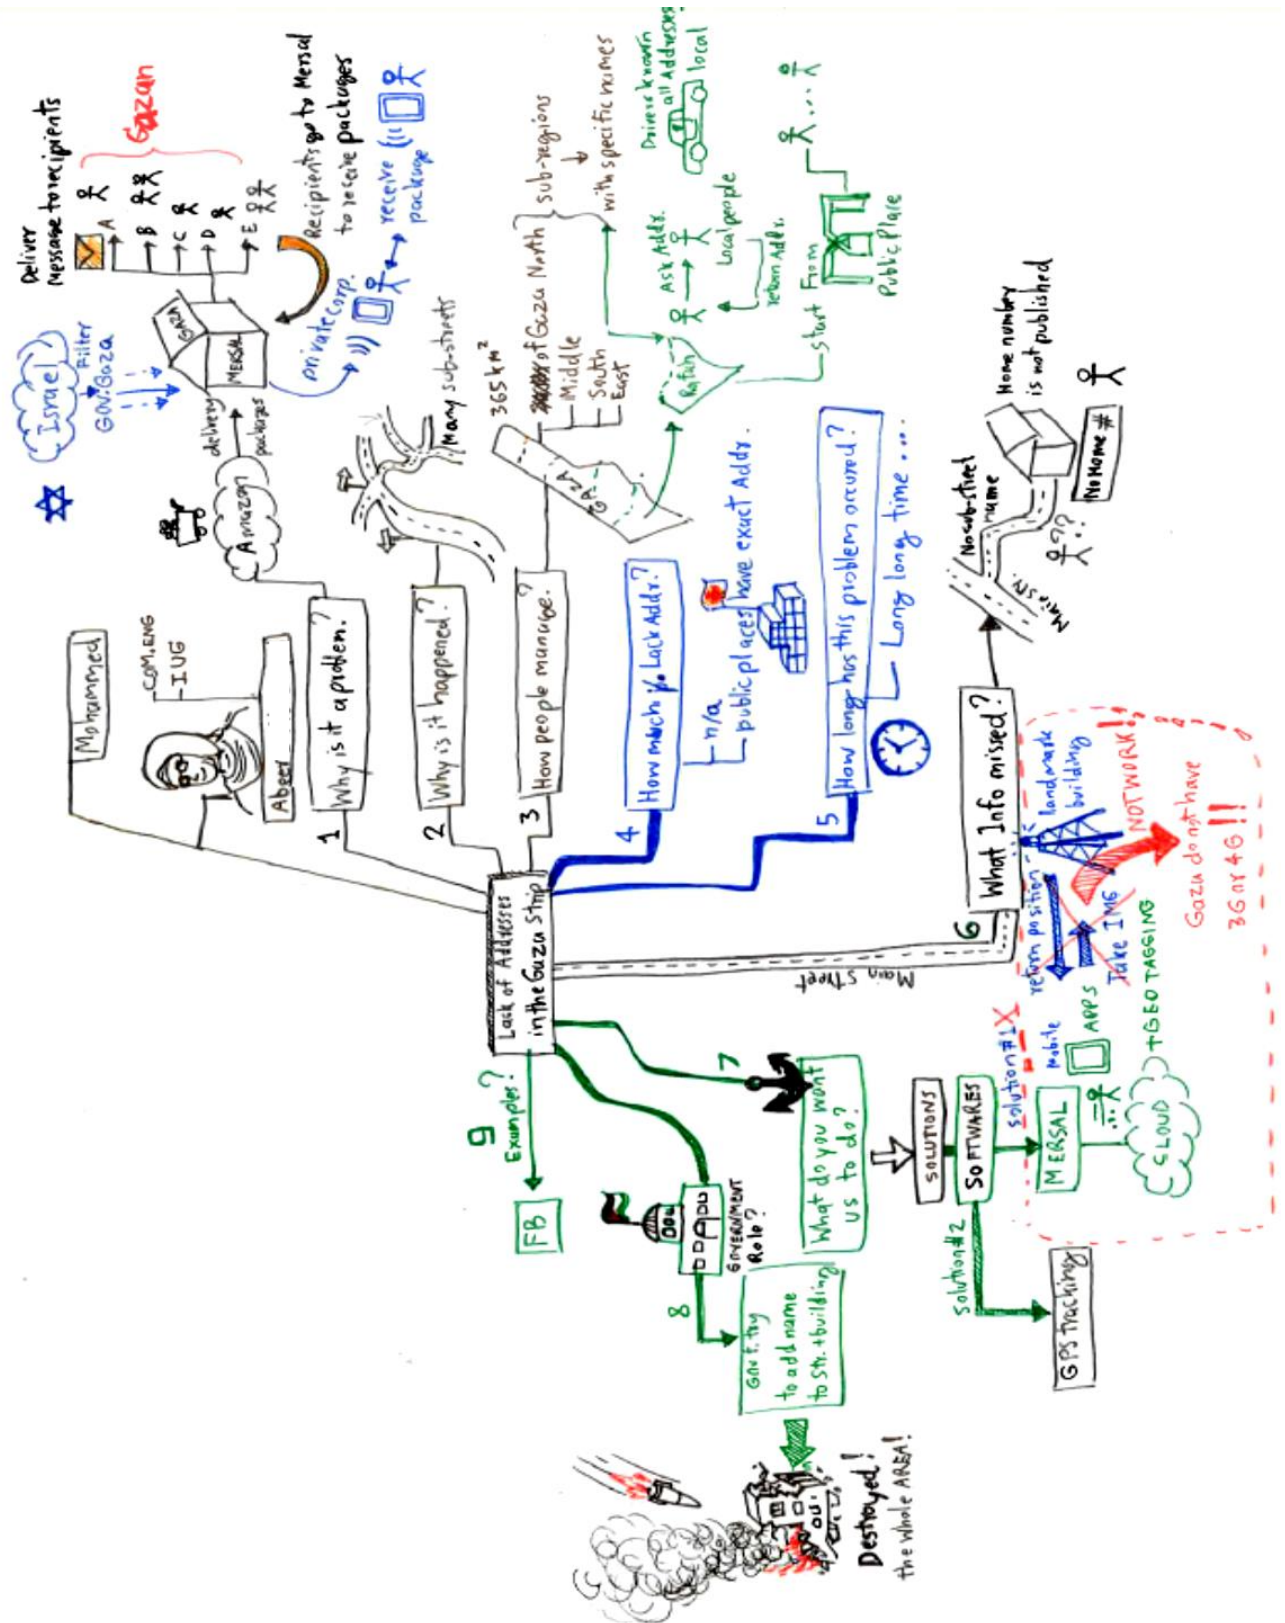 Lack of Addresses
in the Gaza Strip
Mohammed
COM.ENG
IUG
Abeer
1
Why is it a problem?
Amazon
delivery
packages
Israel
Filter
GOV.Gaza
GAZA
MERSAL
Deliver
Message to recipients
A
B
C
D
E
Gazan
Recipients go to Mersal
to receive packages
private corp.
receive
package
2
Why is it happened?
Many sub-streets
3
How people manage?
GAZA
365 km²
of Gaza North
Middle
South
East
sub-regions
with specific names
Rafah
Ask Addr.
Local people
return Addr.
Driver known
all Addresses
local
start From
Public Place
4
How much % Lack Addr.?
n/a
public places have exact Addr.
5
How long has this problem occured?
Long long time ....
6
Main Street
What Info missed?
Main str.
No sub-street
name
Home number
is not published
No Home #
??
7
What do you want
us to do?
SOLUTIONS
SOFTWARES
solution#1X
MERSAL
Mobile
APPS
CLOUD
+GEO TAGGING
return position
Take IMG
landmark
building
NOTWORK!!
Gaza do not have
3G or 4G !!
solution#2
GPS tracking
GOVERNMENT
Role?
8
Gov't. try
to add name
to Str. + building
Destroyed!
the whole AREA!
9
Examples?
FB